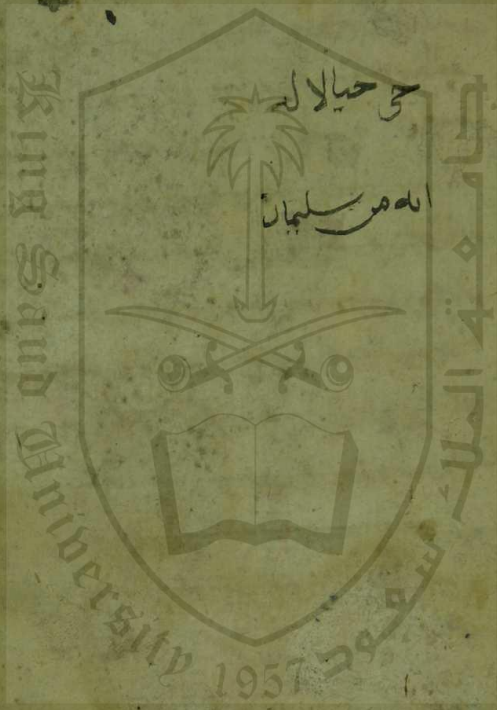 حى حيالا له
انه من سليمان
King Saud University
جامعة الملك سعود
1957